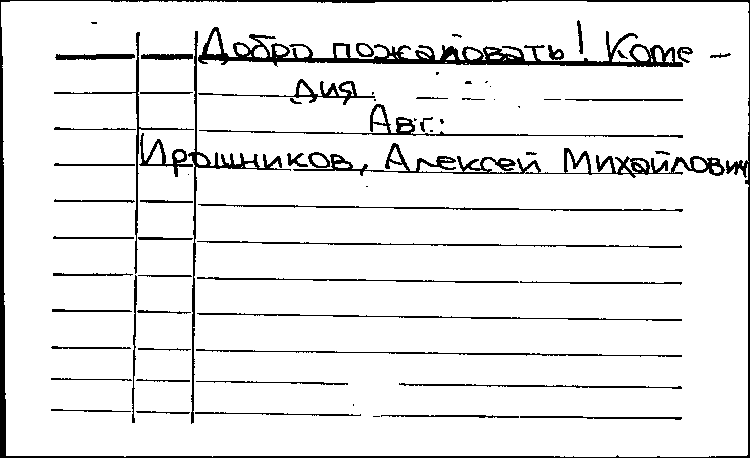 Добро пожаловать! Коме-
дия.
Авт.:
Ирошников, Алексей Михайлович